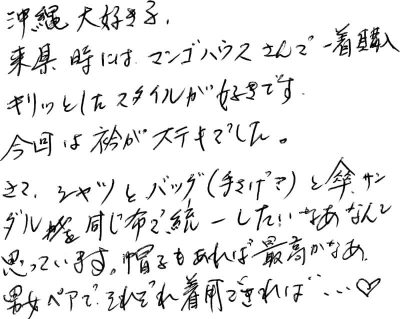 沖縄大好き子、
来県時には マンゴハウスさんで一着購入
キリッとしたスタイルが好きです。
今回は衿がステキでした。
さて、シャツとバッグ(手さげ?)と傘、サン
ダル を同じ布で統一したいなあなんて
思っています。帽子もあれば最高かなあ。
男女ペアでそれぞれ着用できれば…♡